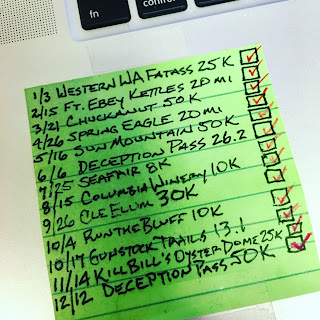 fn
control
1/3 WESTERN WA FATASS 25K
2/15 FT. EBEY KETTLES 20 MI
3/21 CHUCKANUT 50K
4/26 SPRING EAGLE 20 MI
5/16 SUN MOUNTAIN 50K
6/6 DECEPTION PASS 26.2
7/25 SEAFAIR 8K
8/15 COLUMBIA WINERY 10K
9/26 CLE ELUM 30K
10/4 RUN THE BLUFF 10K
10/17 GUNSTOCK TRAILS 13.1
11/14 KILL BILL'S OYSTER DOME 25K
12/12 DECEPTION PASS 50K